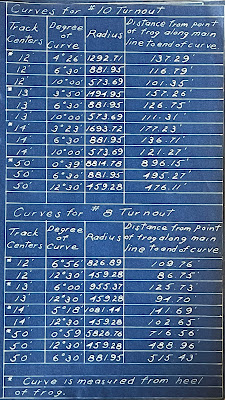 Curves for #10 Turnout
Track Centers Degree of Curve Radius Distance from point of frog along main line to end of curve
* 12' 4°26' 1292.71 137.29
12' 6°30' 881.95 116.79
12' 10°00' 573.69 101.35
* 13' 3°50' 1494.95 157.26
13' 6°30' 881.95 126.75
13' 10°00' 573.69 111.31
* 14' 3°23' 1693.72 177.23
14' 6°30' 881.95 136.71
14' 10°00' 573.69 121.27
* 50' 0°39' 8814.78 896.15
50' 6°30' 881.95 495.27
50' 12°30' 459.28 476.11
Curves for #8 Turnout
Track Centers Degree of Curve Radius Distance from point of frog along main line to end of curve
* 12' 6°56' 826.89 109.76
12' 12°30' 459.28 86.75
* 13' 6°00' 955.37 125.73
13' 12°30' 459.28 94.70
* 14' 5°18' 1081.44 141.69
14' 12°30' 459.28 102.65
* 50' 0°59' 5826.76 716.56
50' 12°30' 459.28 388.96
50' 6°30' 881.95 515.43
* Curve is measured from heel
of frog.